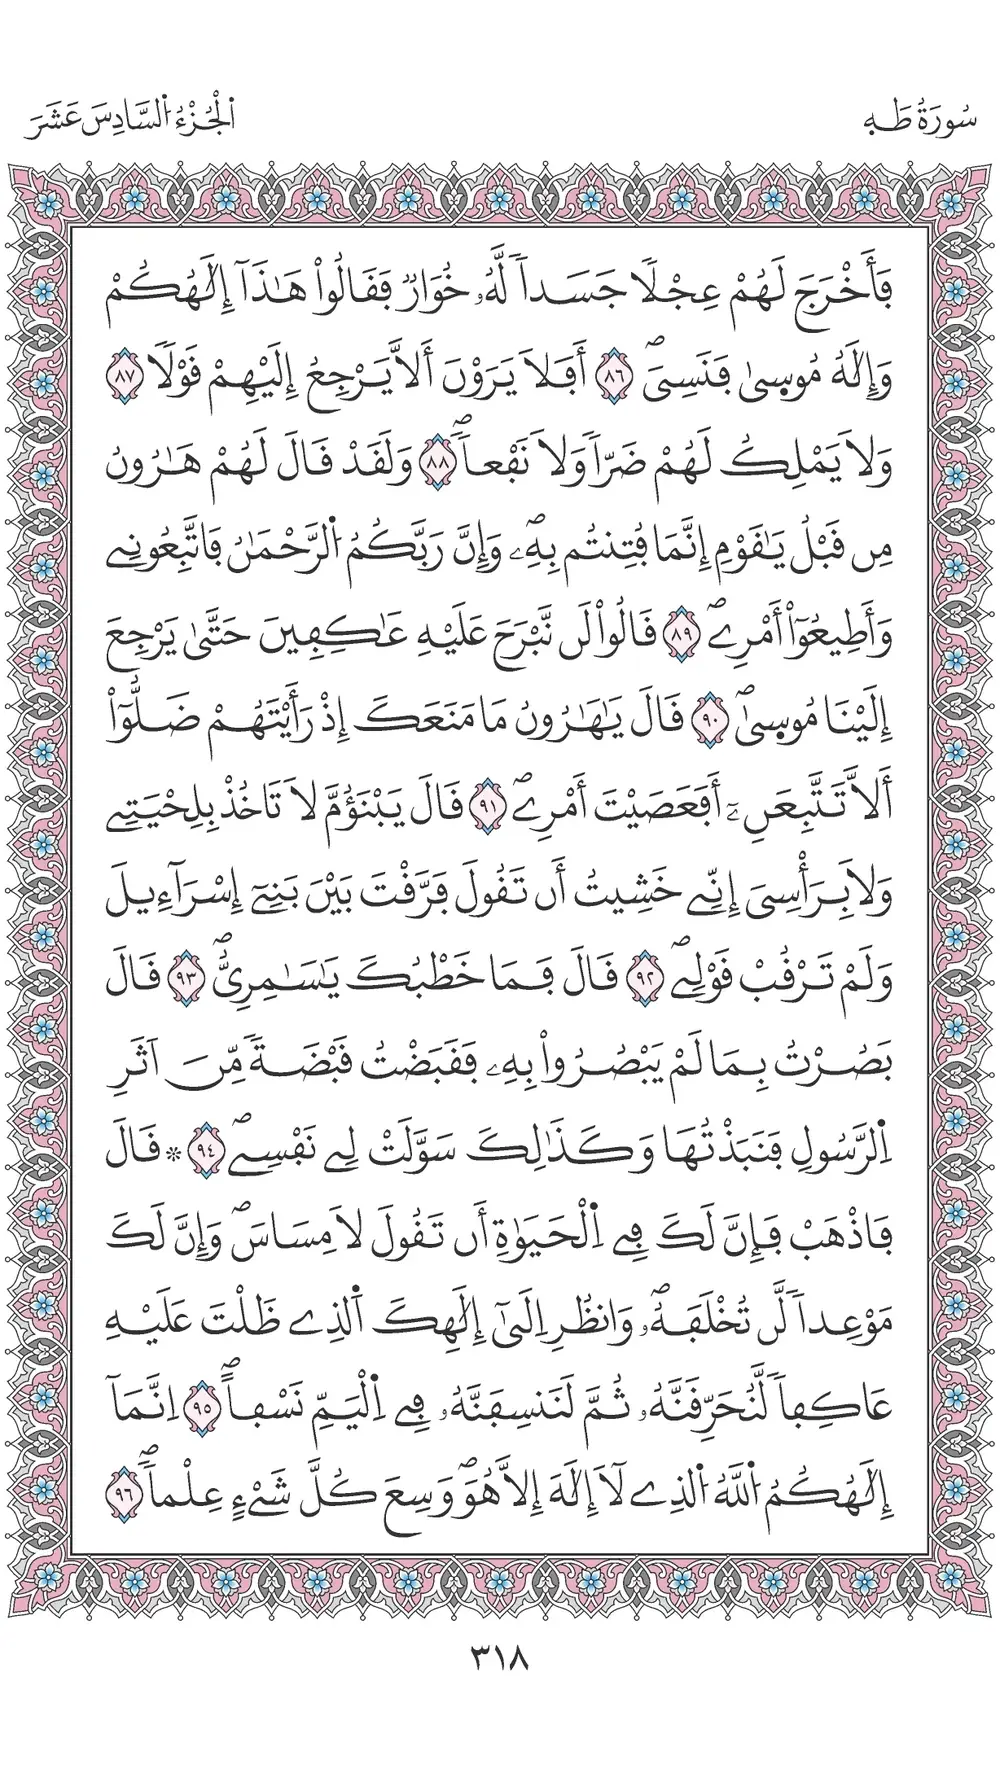 سُورَةُ طَـهِ
اَلْجُزْءُ اَلسَّادِسَ عَشَرَ
فَأَخْرَجَ لَهُمْ عِجْلاٗ جَسَداٗ لَّهُۥ خُوَارٞ فَقَالُواْ هَٰذَآ إِلَٰهُكُمْ
وَإِلَٰهُ مُوس۪يٰ فَنَسِيَۖ ٨٦ أَفَلَا يَرَوْنَ أَلَّا يَرْجِعُ إِلَيْهِمْ قَوْلاٗ ٨٧
وَلَا يَمْلِكُ لَهُمْ ضَرّاٗ وَلَا نَفْعاٗۖ ٨٨ وَلَقَدْ قَالَ لَهُمْ هَٰرُونُ
مِن قَبْلُ يَٰقَوْمِ إِنَّمَا فُتِنتُم بِهِۦۖ وَإِنَّ رَبَّكُمُ اُلرَّحْمَٰنُ فَاتَّبِعُونِے
وَأَطِيعُوٓاْ أَمْرِےۖ ٨٩ قَالُواْ لَن نَّبْرَحَ عَلَيْهِ عَٰكِفِينَ حَتَّىٰ يَرْجِعَ
إِلَيْنَا مُوس۪يٰۖ ٩٠ قَالَ يَٰهَٰرُونُ مَا مَنَعَكَ إِذْ رَأَيْتَهُمْ ضَلُّوٓاْ
أَلَّا تَتَّبِعَنِۦٓ أَفَعَصَيْتَ أَمْرِےۖ ٩١ قَالَ يَبْنَؤُمَّ لَا تَاخُذْ بِلِحْيَتِے
وَلَا بِرَأْسِيَ إِنِّے خَشِيتُ أَن تَقُولَ فَرَّقْتَ بَيْنَ بَنِےٓ إِسْرَآءِيلَ
وَلَمْ تَرْقُبْ قَوْلِےۖ ٩٢ قَالَ فَمَا خَطْبُكَ يَٰسَٰمِرِيُّۖ ٩٣ قَالَ
بَصُرْتُ بِمَا لَمْ يَبْصُرُواْ بِهِۦ فَقَبَضْتُ قَبْضَةٗ مِّنَ اَثَرِ
اِ۬لرَّسُولِ فَنَبَذْتُهَا وَكَذَٰلِكَ سَوَّلَتْ لِے نَفْسِےۖ ٩٤ ۞ قَالَ
فَاذْهَبْ فَإِنَّ لَكَ فِے اِ۬لْحَيَوٰةِ أَن تَقُولَ لَا مِسَاسَۖ وَإِنَّ لَكَ
مَوْعِداٗ لَّن تُخْلَفَهُۥۖ وَانظُرِ اِلَيٰٓ إِلَٰهِكَ اَ۬لذِے ظَلْتَ عَلَيْهِ
عَاكِفاٗ لَّنُحَرِّقَنَّهُۥ ثُمَّ لَنَنسِفَنَّهُۥ فِے اِ۬لْيَمِّ نَسْفاًۖ ٩٥ اِنَّمَآ
إِلَٰهُكُمُ اُ۬للَّهُ اُ۬لذِے لَآ إِلَٰهَ إِلَّا هُوَۖ وَسِعَ كُلَّ شَےْءٍ عِلْماٗۖ ٩٦
٣١٨